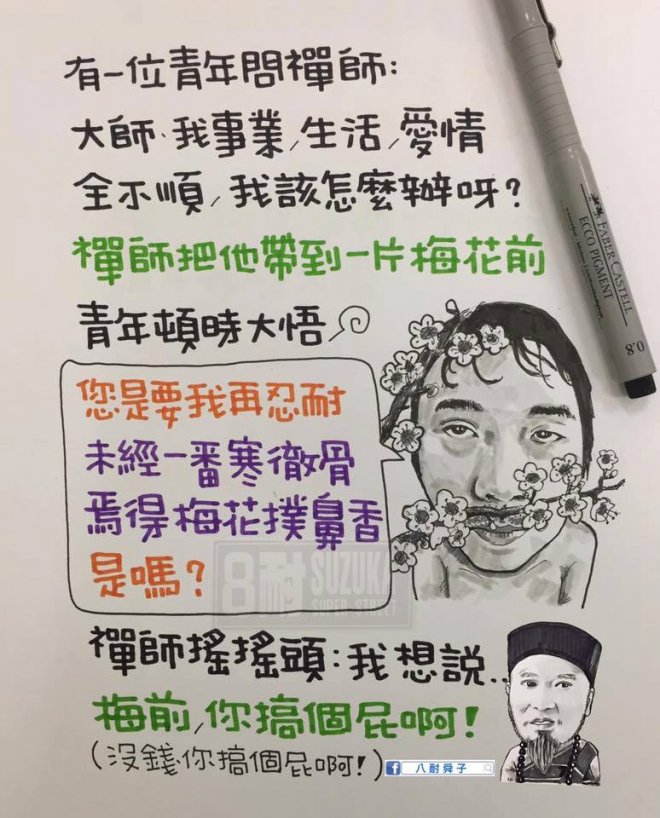 有一位青年問禪師:
大師、我事業,生活,愛情
全不順,我該怎麼辦呀?
禪師把他帶到一片梅花前
青年頓時大悟
您是要我再忍耐
未經一番寒徹骨
焉得梅花撲鼻香
是嗎?
禪師搖搖頭:我想說..
梅前,你搞個屁啊!
(沒錢,你搞個屁啊!)
f 八耐舜子
8耐 SUZUKA
SUPER STREET
FABER-CASTELL
ECCO PIGMENT
0.8